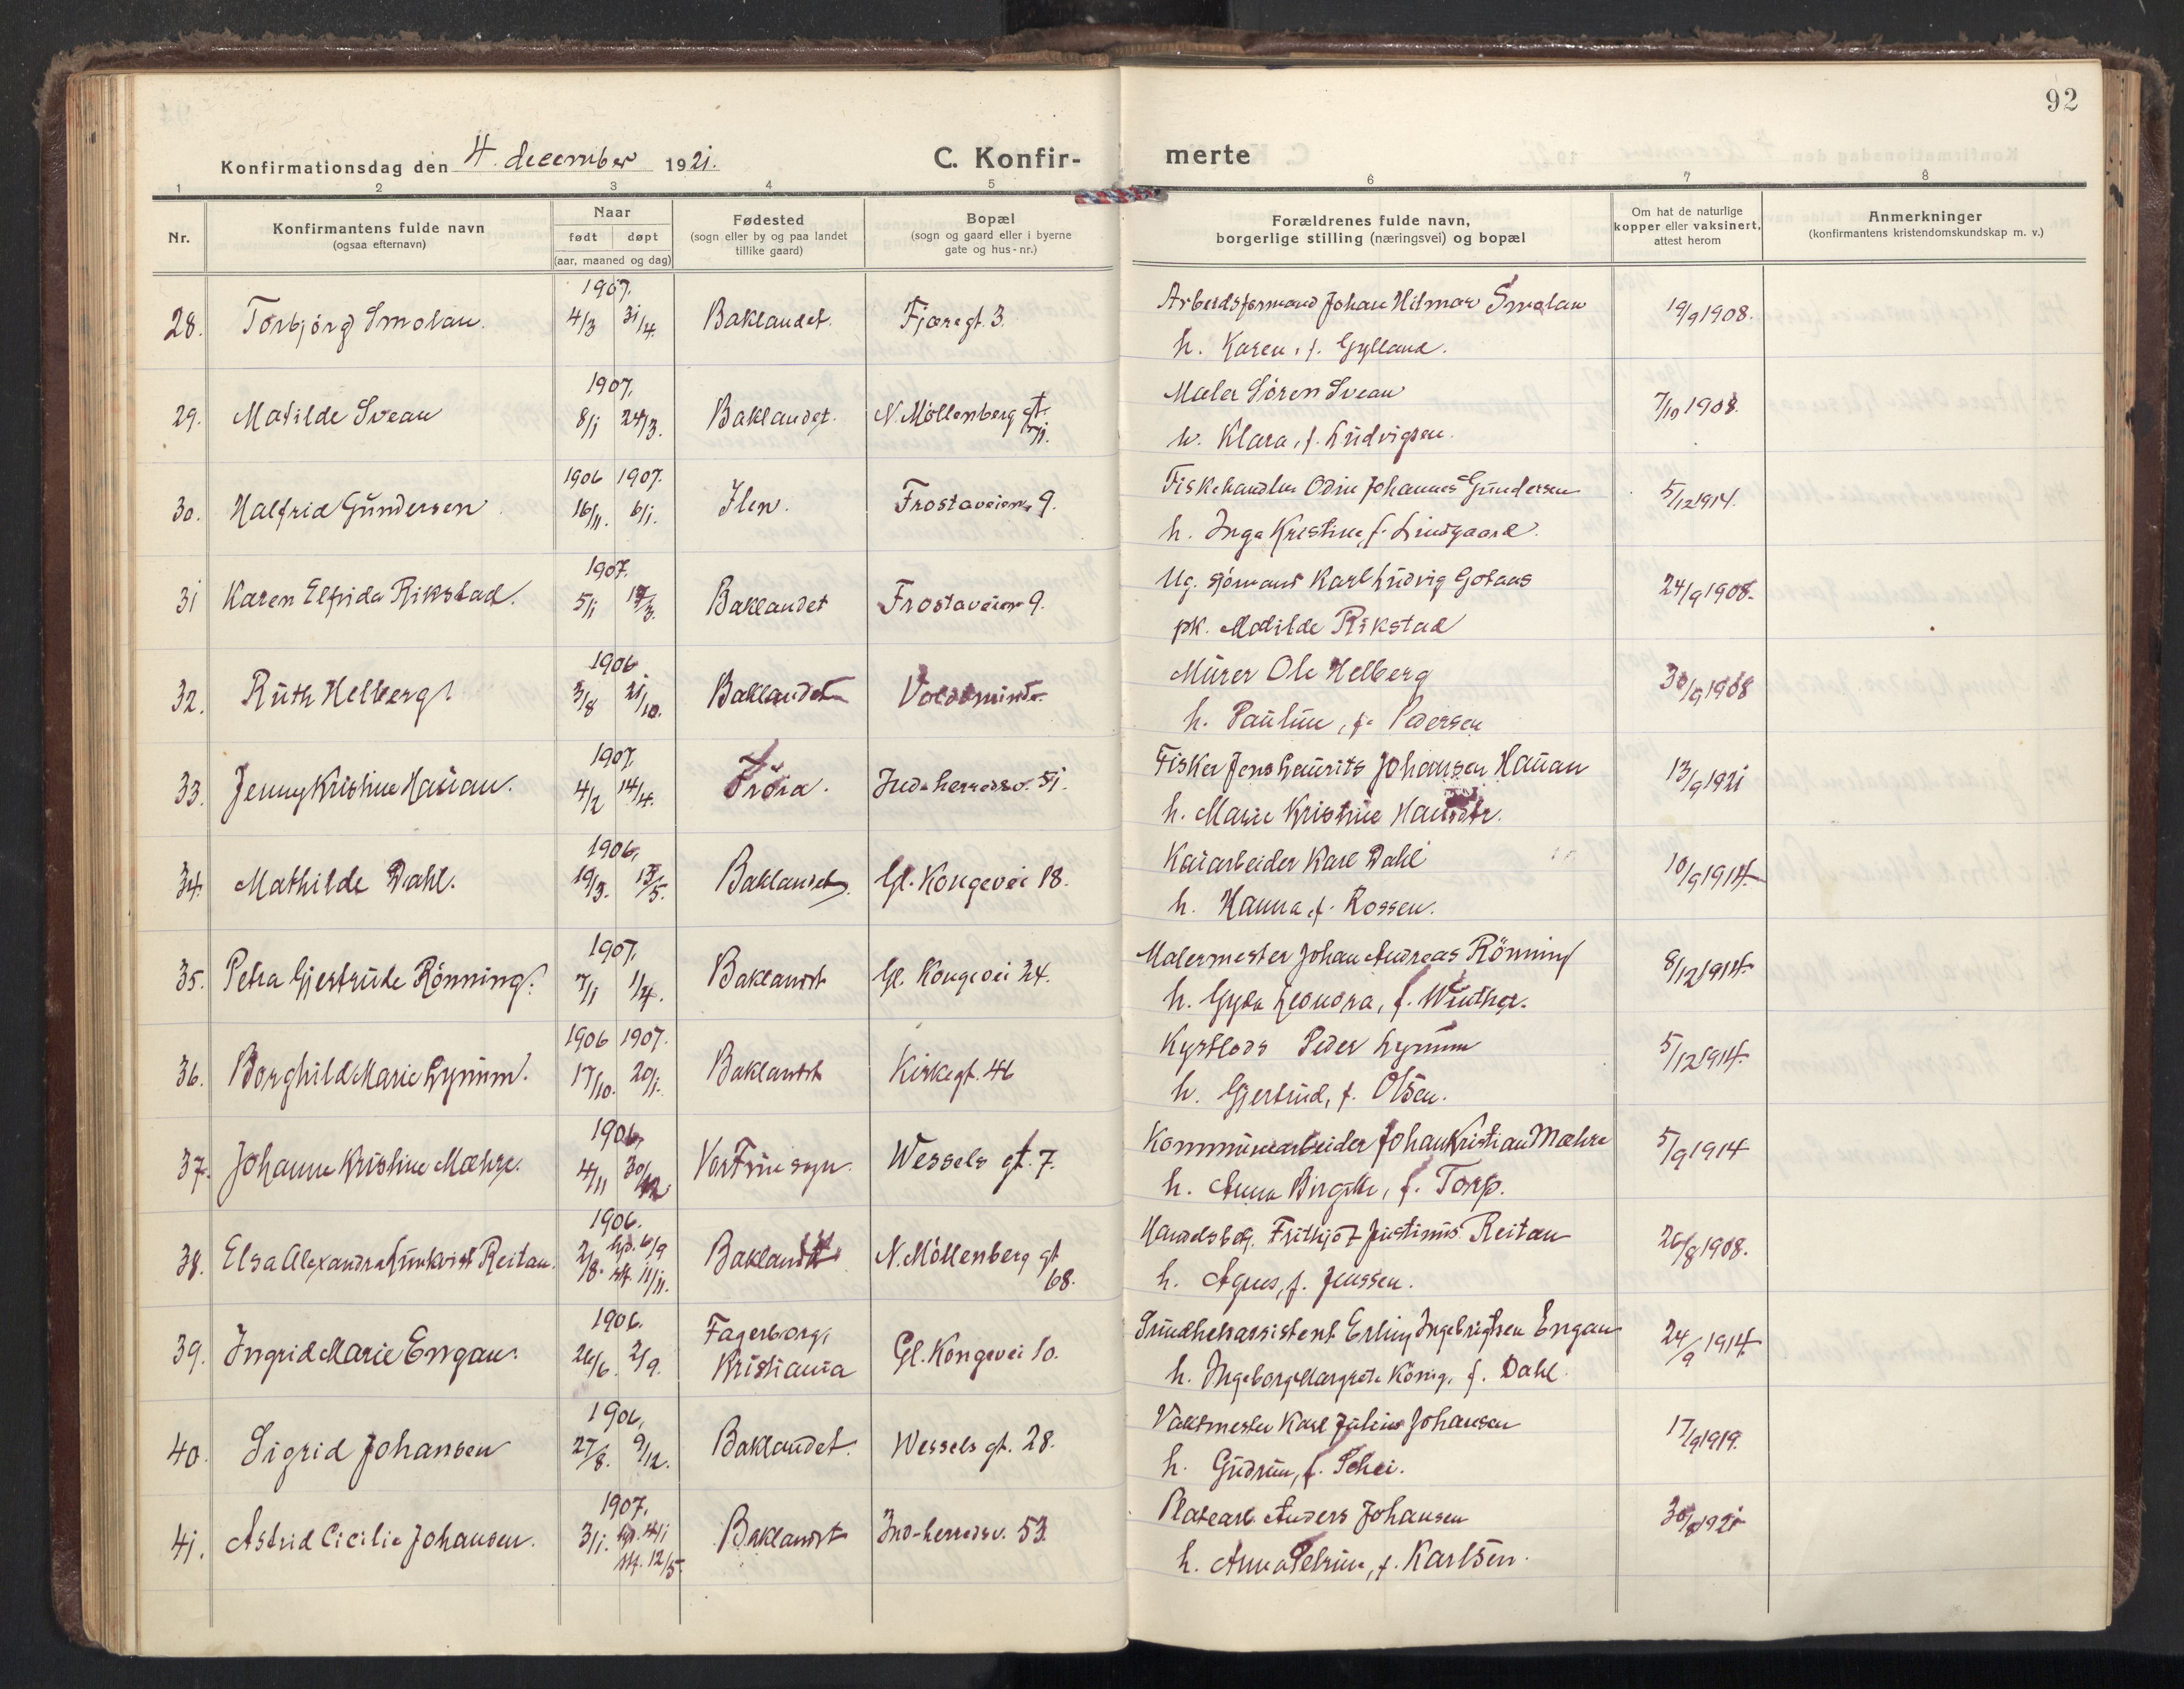 92
Konfirmationsdag den 4. december 1921.
C. Konfir-
merte
1 2 3 4 5 6 7 8
Nr.
Konfirmantens fulde navn
(ogsaa efternavn)
Naar
født døpt
(aar, maaned og dag)
Fødested
(sogn eller by og paa landet
tillike gaard)
Bopæl
(sogn og gaard eller i byerne
gate og hus-nr.)
Forældrenes fulde navn,
borgerlige stilling (næringsvei) og bopæl
Om hat de naturlige
kopper eller vaksinert,
attest herom
Anmerkninger
(konfirmantens kristendomskundskap m. v.)
1907.
28. Torbjörg Smolan. 4/3 31/4. Baklandet. Fjæregt. 3. Arbeidsformand Johan Hilmar Smolan 19/9 1908.
h. Karen, f. Gylland.
1907.
29. Matilde Svean 8/1 24/3. Baklandet. N. Möllenberg gt. 71. Maler Sören Svean 7/10 1908.
h. Klara, f. Ludvigsen.
1906 1907.
30. Halfrid Gundersen 16/11. 6/1. Ilen. Frostaveien 9. Fiskehandler Odin Johannes Gundersen 5/12 1914.
h. Inga Kristine, f. Lindgaard.
1907.
31 Karen Elfrida Rikstad. 5/1 17/3. Baklandet Frostaveien 9. Ug. sjömand Karl Ludvig Gotaas 24/9 1908.
pk. Matilde Rikstad
1906
32. Ruth Helberg. 3/8 21/10. Baklandet Voldsminde. Murer Ole Helberg 30/9 1908
h. Pauline, f. Pedersen
1907.
33. Jenny Kristine Hauan. 4/2 14/4. Fröia. Ind-herredsv. 51. Fisker Jens Laurits Johansen Hauan 13/9 1921
h. Marie Kristine
1906.
34. Mathilde Dahl. 19/3. 13/5. Baklandet. Gl. Kongevei 18. Kaiarbeider Karl Dahl 10/9 1914.
h. Hanna, f. Rossen.
1907.
35. Petra Gjertrude Rönning. 7/1 1/4. Baklandet Gl. Kongevei 34. Malermester Johan Andreas Rönning 8/12 1914.
h. Gyda Leonora, f. Winther.
1906 1907.
36. Borghild Marie Lynum. 17/10. 20/1. Baklandet Kirkegt. 46 Peder Lynum 5/12 1914.
h. Gjertrud, f. Olsen.
1906.
37. Johanne Kristine Mæhre. 4/11 30/12. Vor Frue sogn. Wessels gt. 7. Kommunearbeider Johan Kristian Mæhre 5/9 1914
h. Anna Birgitte, f. Torp.
1906.
38. Elsa Alexandra Lundkvist Reitan. 2/8. hjd. 6/9 stf. 11/11. Baklandet N. Möllenberg gt. 68. Handelsbg. Frithjof Justinus Reitan 26/8 1908.
h. Agnes, f. Jenssen.
1906.
39. Ingrid Marie Engan. 26/6. 2/9. Fagerborg, Kristiania Gl. Kongevei 10. Sundhetsassistent Erling Ingebrigtsen Engan 24/9 1914
h. Ingeborg Margrete König, f. Dahl.
1906.
40. Sigrid Johansen 27/8. 9/12. Baklandet. Wessels gt. 28. Vaktmester Karl Julius Johansen 17/9 1919.
h. Gudrun, f. Schei.
1907.
41. Astrid Cicilie Johansen. 3/1. hjd. 14/1 stf. 12/5 Baklandet Ind-herredsv. 53. Platearb. Anders Johansen 30/8 1921
h. Anna Petrine, f. Karlsen.